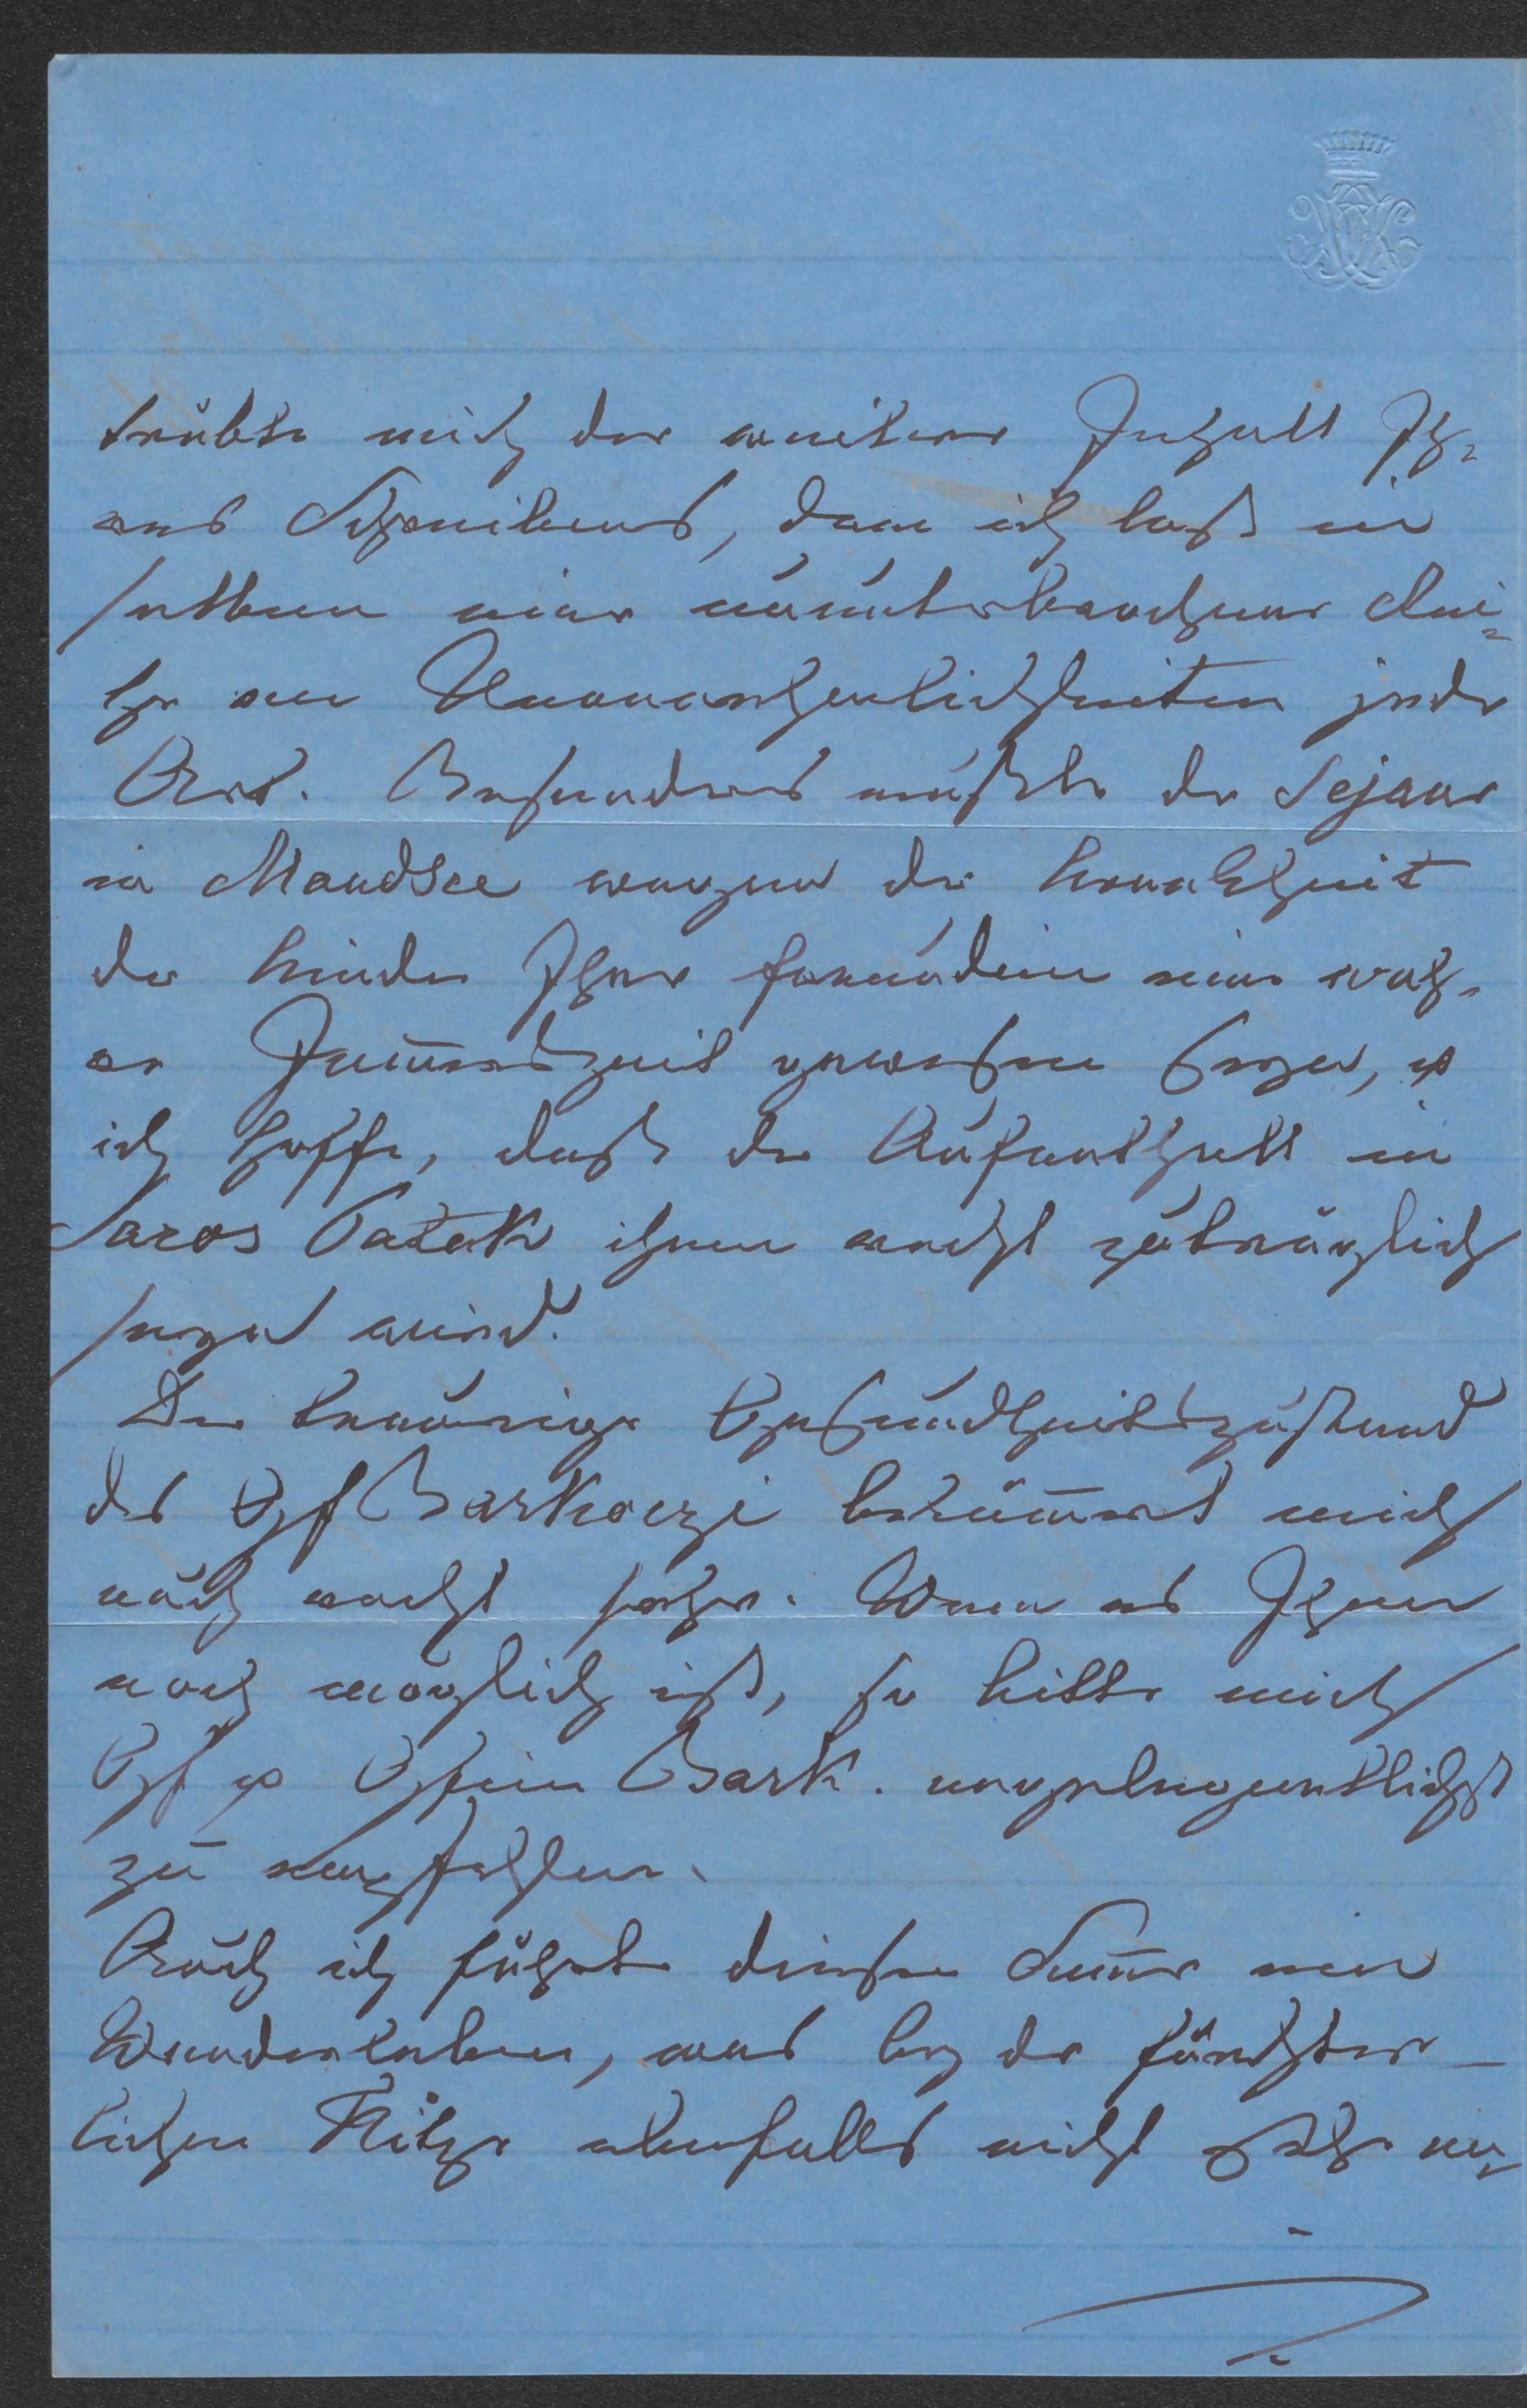 trübte mich der weitere Inhalt Ih-
res Schreibens, denn ich laß in
selben eine ununterbrochene Rei-
he von Unannehmlichkeiten jeder
Art. Besonders mußte der Sejour
in Mondsee wegen der Krankheit
der Kinder Ihrer Freundin eine wah-
re Jammerszeit gewesen seyn, u
ich hoffe, daß der Aufenthalt in
Saros Patak ihnen recht zuträglich
seyn wird.
Der traurige Gesundheitszustand
des Gf Barkoczi bekümmert mich
auch recht sehr. Wenn es Ihnen
noch möglich ist, so bitte mich
Gf u Gfin Bark. angelegentlichst
zu empfehlen.
Auch ich führte diesen Sommer ein
Wanderleben, was bey der fürchter-
lichen Hitze ebenfalls nicht sehr an-